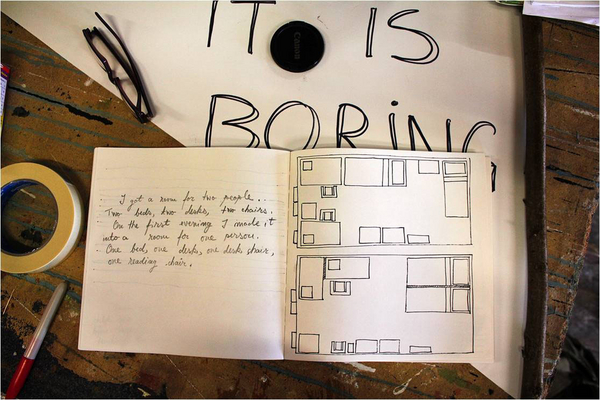 IT IS
Canon
BORING
I got a room for two people.
Two beds, two desks, two chairs.
On the first evening I made it
into a room for one person.
One bed, one desk, one desk chair,
one reading chair.